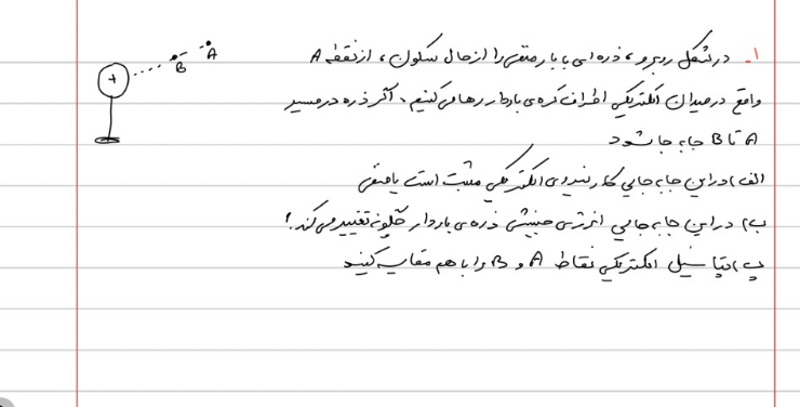 ۱- در شکل روبرو، ذره‌ای با بار منفی را از حال سکون، از نقطه A
واقع در میدان الکتریکی اطراف کره‌ی باردار رها می‌کنیم، اگر ذره در مسیر
A تا B جابه‌جا شود
الف) در این جابه‌جایی کار نیروی الکتریکی مثبت است یا منفی
ب) در این جابه‌جایی انرژی جنبشی ذره‌ی باردار چگونه تغییر می‌کند؟
پ) پتانسیل الکتریکی نقاط A و B را با هم مقایسه کنید
+
B
A